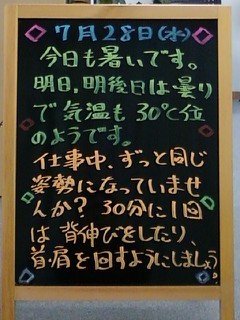 7月28日(水)
今日も暑いです。
明日、明後日は曇り
で気温も30℃位
のようです。
仕事中、ずっと同じ
姿勢になっていませ
んか？30分に1回
は背伸びをしたり、
首・肩を回すようにしましょう!